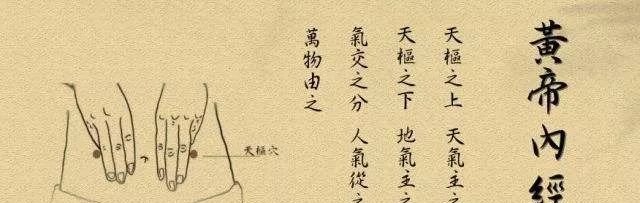 黃帝內經
天樞之上 天氣主之
天樞之下 地氣主之
氣交之分 人氣從之
萬物由之
天樞穴